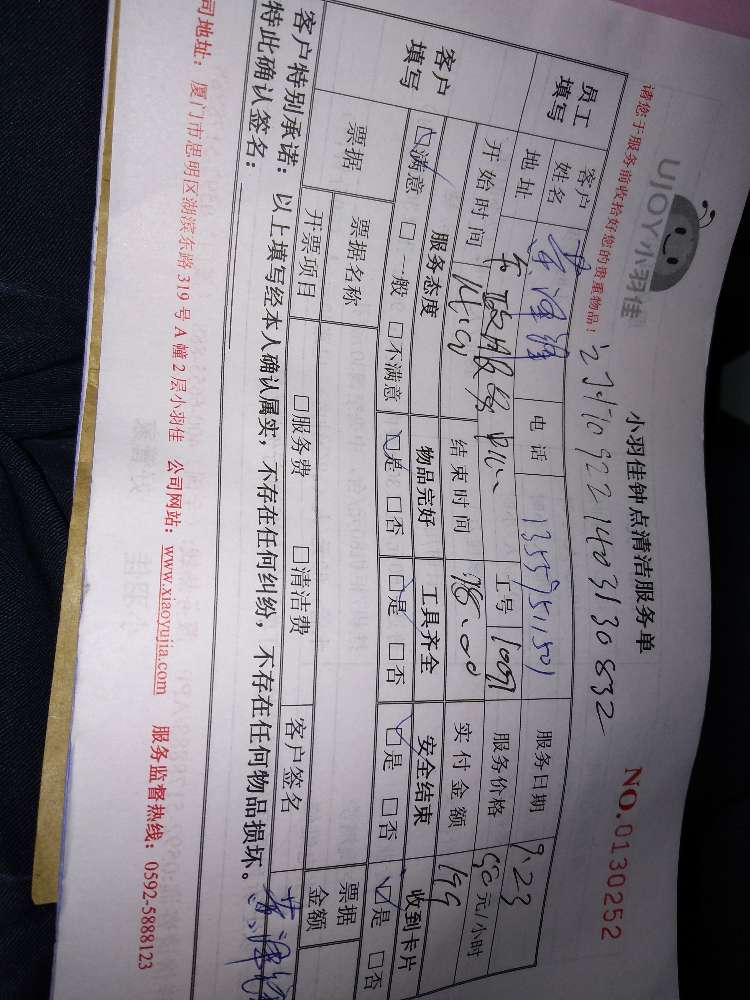 UJOY小羽佳
小羽佳钟点清洁服务单
NO.0130252
请您于服务前收拾好您的贵重物品!
员工填写
客户姓名
电话
13559751501
服务日期
9.23
地址
工号
服务价格
50元/小时
开始时间
结束时间
18:00
实付金额
199
客户填写
服务态度
物品完好
工具齐全
安全结束
收到卡片
☑满意 □一般 □不满意
☑是 □否
☑是 □否
☑是 □否
☑是 □否
票据
票据名称
票据金额
开票项目
□服务费 □清洁费
客户签名
客户特别承诺:以上填写经本人确认属实,不存在任何纠纷,不存在任何物品损坏。
特此确认签名:
司地址:厦门市思明区湖滨东路319号A幢2层小羽佳 公司网站:www.xiaoyujia.com 服务监督热线:0592-5888123